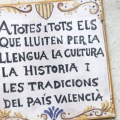 A TOTES I TOTS ELS
QUE LLUITEN PER LA
LLENGUA LA CULTURA
LA HISTORIA I
LES TRADICIONS
DEL PAÍS VALENCIÀ